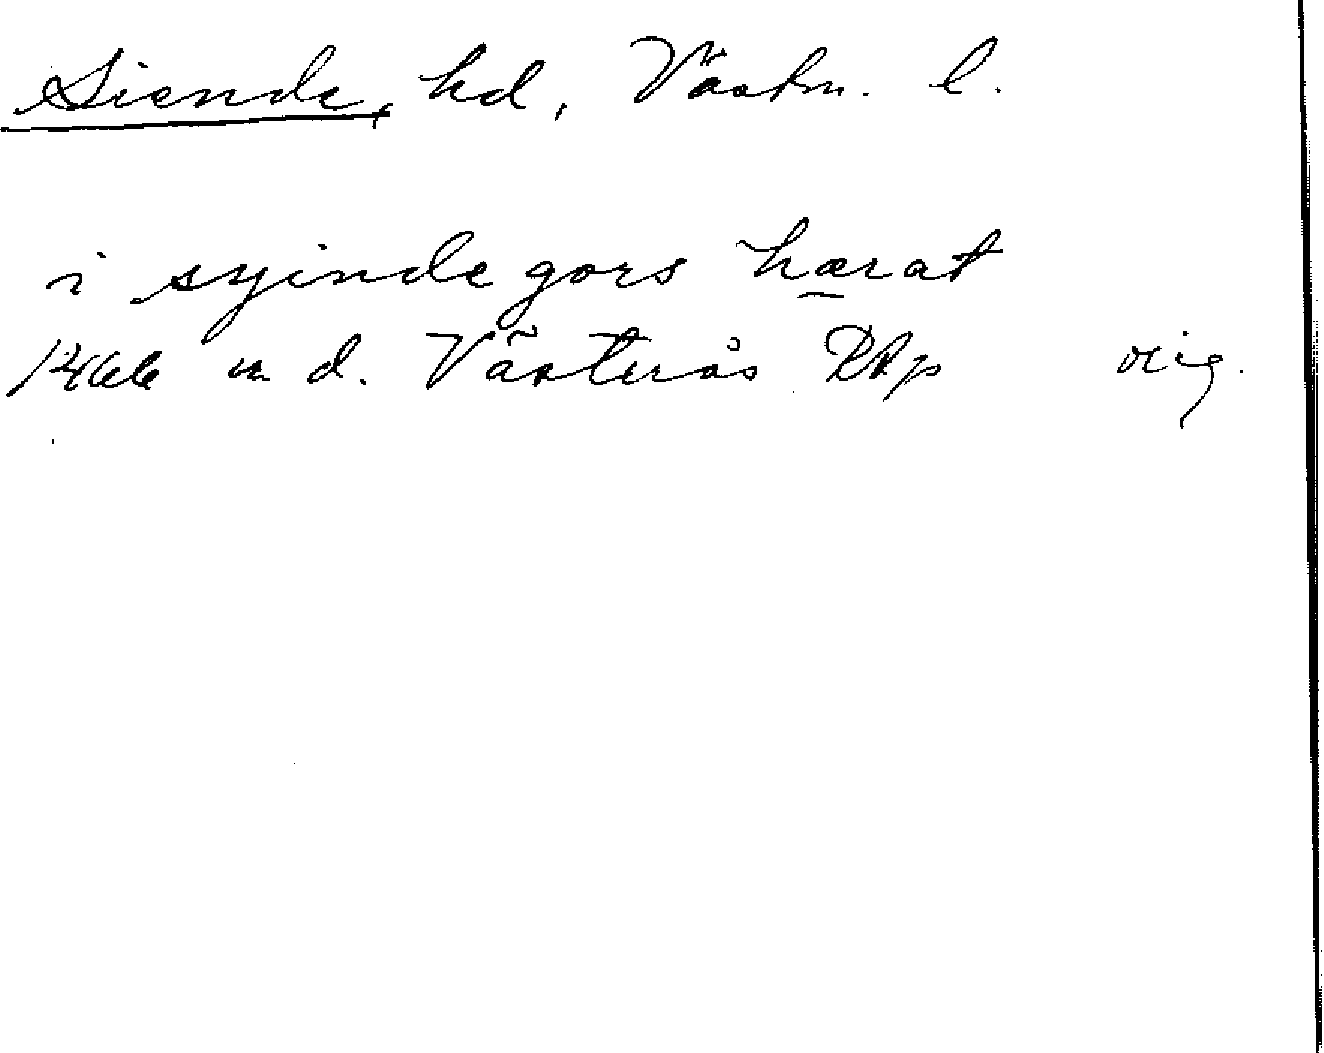 Siende, hd, Västm. l.
i syinde gors hærat
1466 u d. Västerås RAp orig.